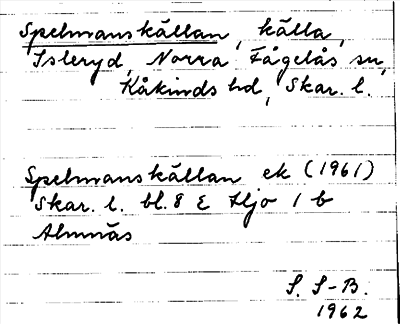 Spelmanskällan, källa,
Isleryd, Norra Fågelås sn,
Kåkinds hd, Skar. l.
Spelmanskällan ek (1961)
Skar. l. bl. 8 E Hjo 1 b
Almnäs
S. S-B.
1962